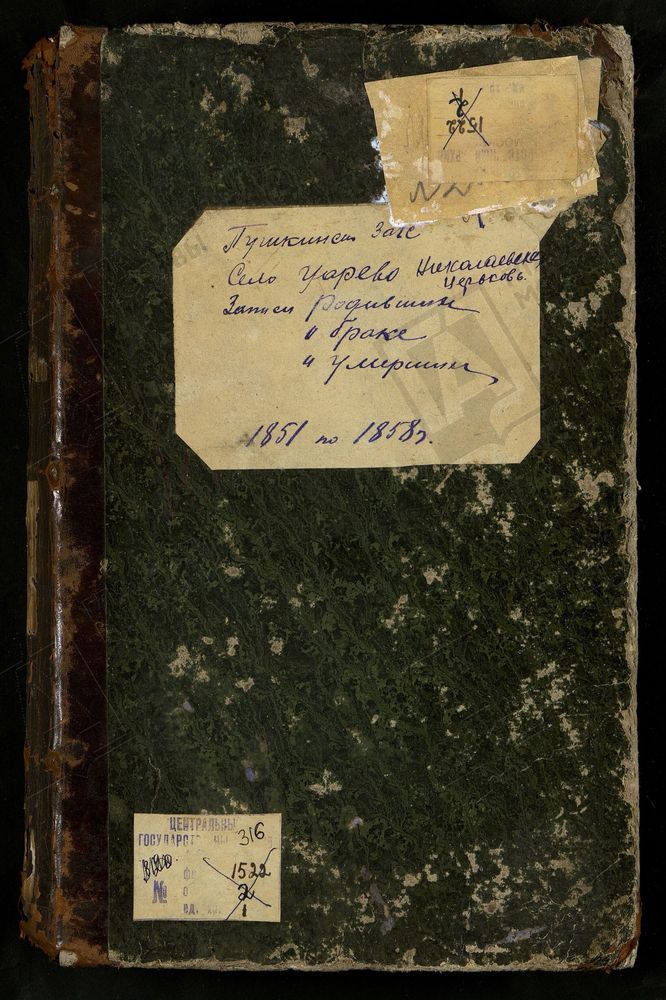 1522
2
Пушкинск Загс
Село Царево Николаевска
Церковь.
Записи Родившихся
" браке
" Умерших
1851 по 1858 г.
ЦЕНТРАЛЬНЫ
ГОСУДАРСТ
316
1522
№ О 2
ЕД. ХР. 1